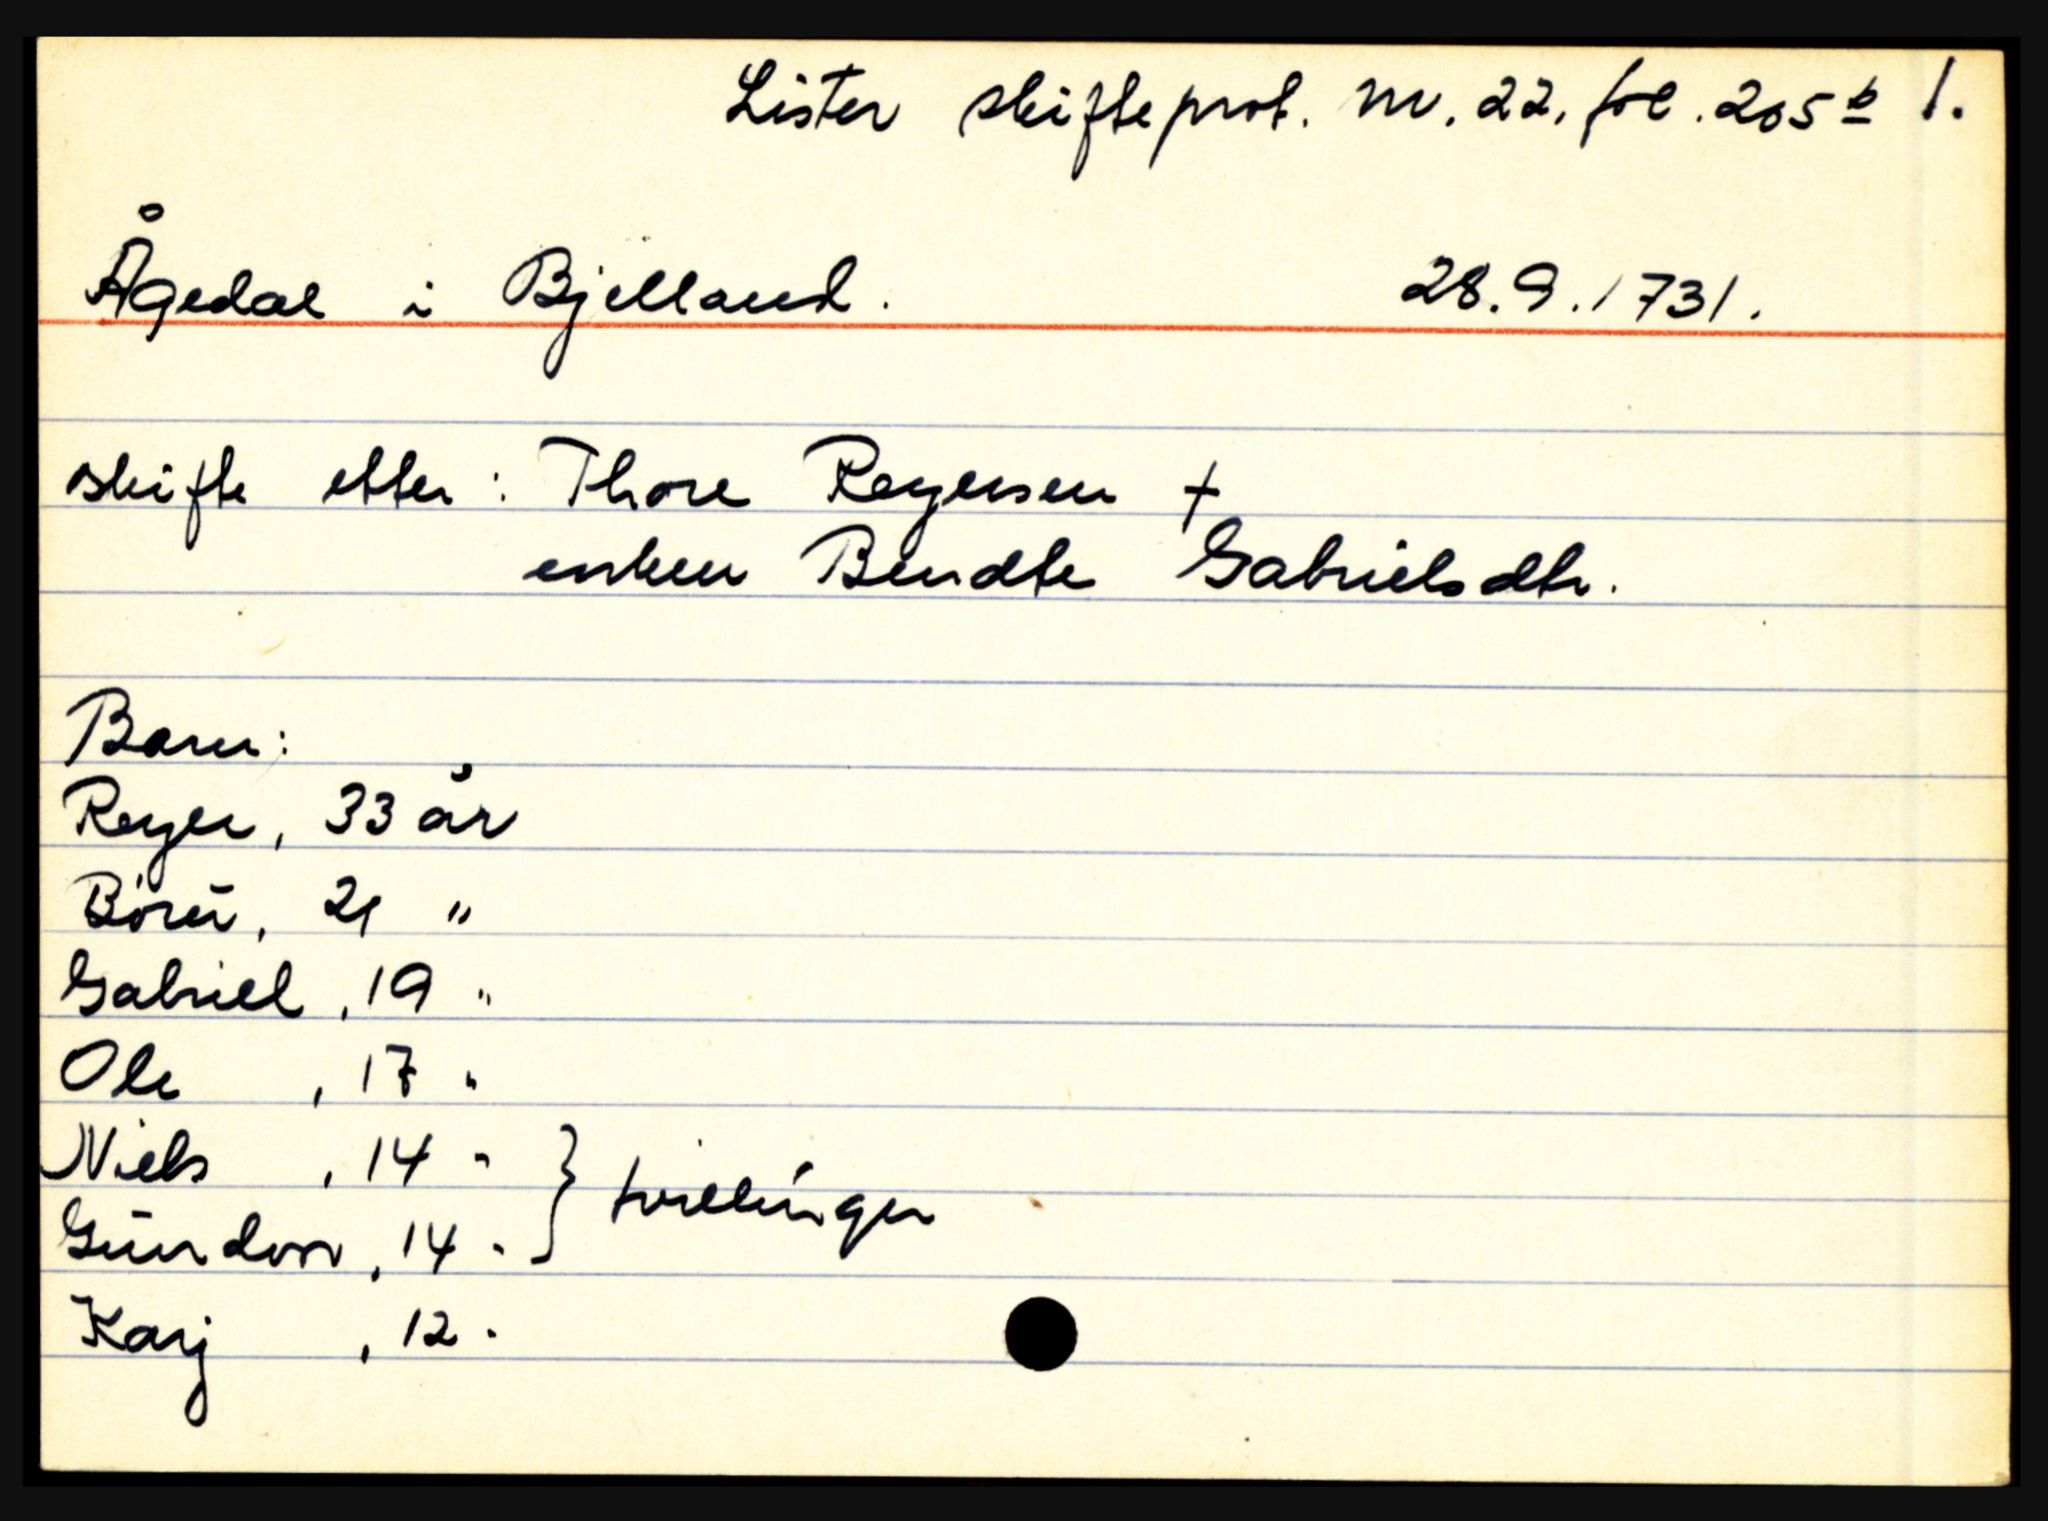 Lister skifteprot. nr. 22, fol. 205 b 1.
Ågedal i Bjelland. 28.9.1731.
skifte etter: Thore Reyersen +
enken Bendte Gabrielsdtr.
Barn:
Reyer, 33 år
Börü, 21 "
Gabriel, 19 "
Ole, 17 "
Niels, 14 " } tvillinger
Gundvor, 14 "
Karj, 12 "